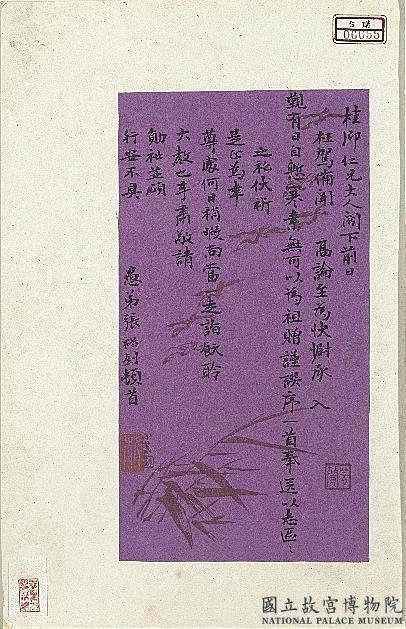 桂卿仁兄大人閣下前日
枉駕備聞 高論至為快慰承 入
覲有日自慙寒素無可以為祖贈謹譔序一首奉送以志區區
之私伏祈
是正為幸
尊處何日稍暇尚當一走詣飫聆
大教也手肅敬請
勛祉並頌
行安不具
愚弟張裕釗頓首
國立故宮博物院
NATIONAL PALACE MUSEUM